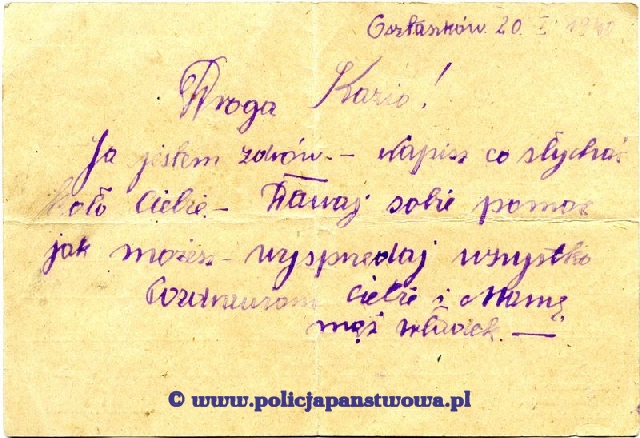 Osztaszków 20. I 1940
Droga Kazio!
Ja jestem zdrów. – Napisz co słychać
koło Ciebie – Dawaj sobie pomoc
jak możesz – wysprzedaj wszystko
Pozdrawiam Ciebie i Mamę
mąż Władek. —
© www.policjapanstwowa.pl